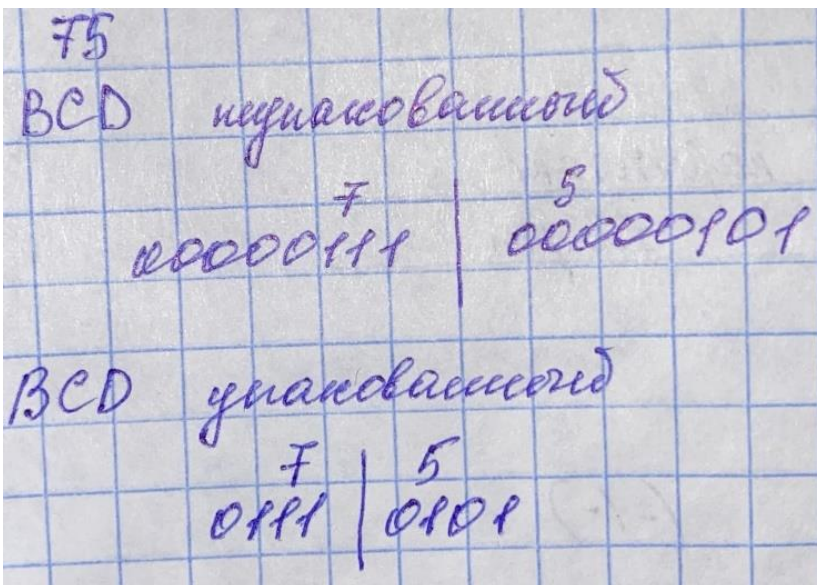 75
BCD неупакованный
7 | 5
00000111 | 00000101
BCD упакованный
7 | 5
0111 | 0101